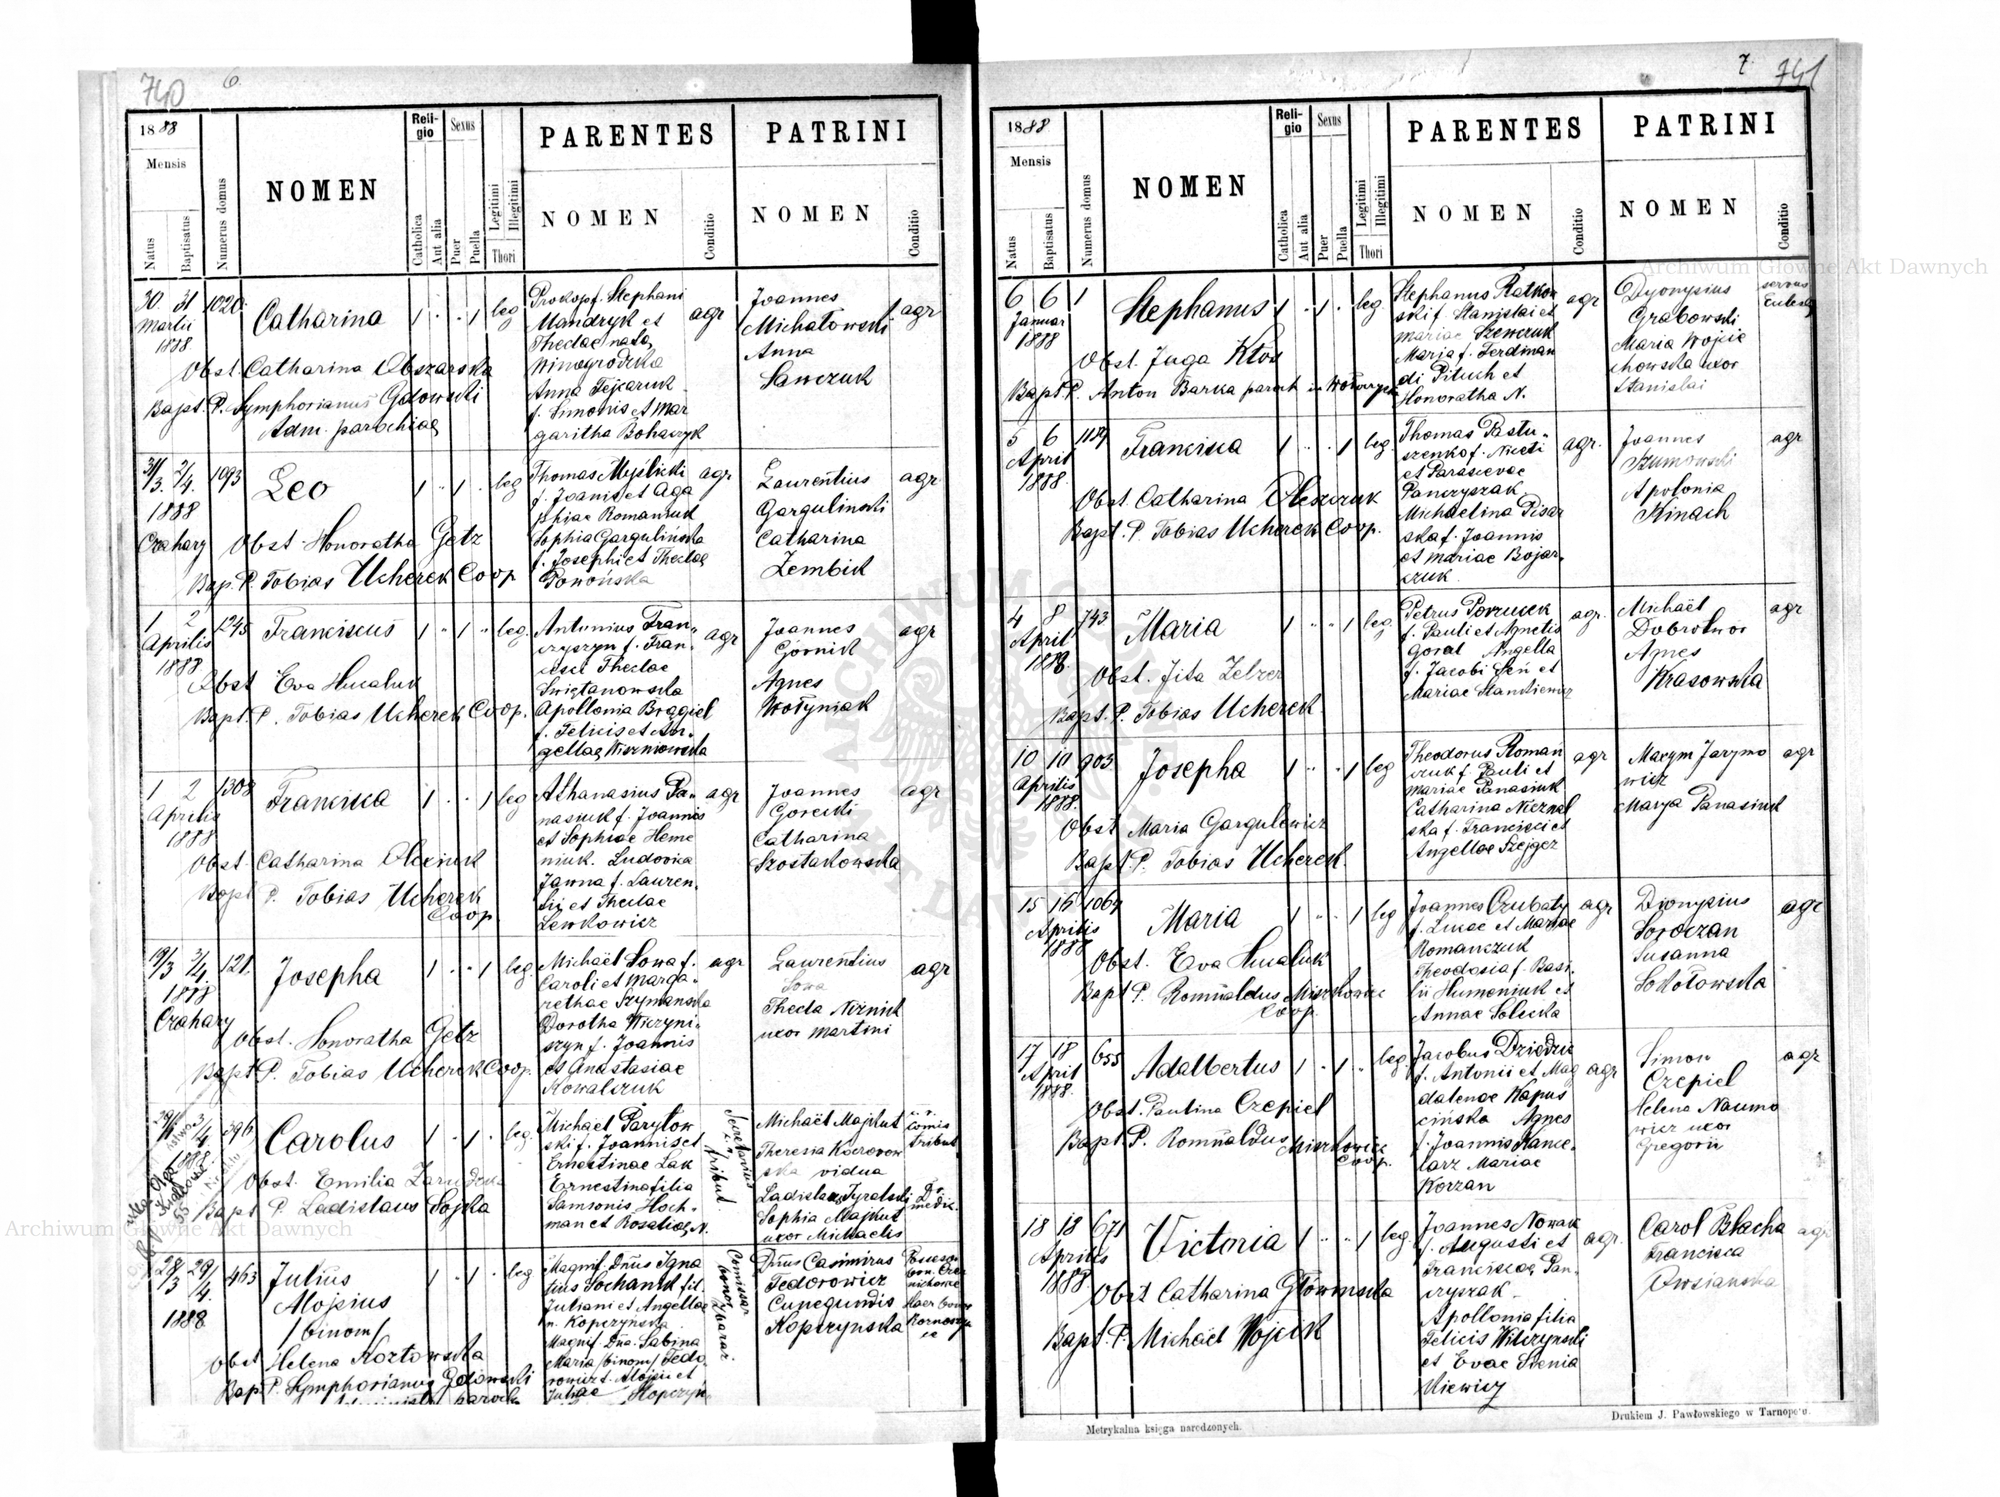 740 6.
1888
Mensis
Natus
Baptisatus
Numerus domus
NOMEN
Religio
Catholica
Aut alia
Sexus
Puer
Puella
Legitimi
Illegitimi
Thori
PARENTES
NOMEN
Conditio
PATRINI
NOMEN
Conditio
30 31 1020 Catharina 1 1 leg
Martii
1888
Obst. Catharina Obszarska
Bapt. P. Symphorianus Gdowski
Adm. parochiae
Prokop f. Stephani
Mandryk et
Theclae nata
Winogrodzka
Anna Fejcaruk
f. Simonis et Mar
garitha Bohaczyk
agr
Joannes
Michałowski
Anna
Sawczuk
agr
31/3. 2/4. 1093 Leo 1 1 leg
1888
Czahary Obst. Honoratha Getz
Bap. P. Tobias Ucherek Coop
Thomas Myślicki
f. Joanis et Aga
phiae Romaniuk
Sophia Gargulińska
f. Josephi et Theclae
agr
Laurentius
Gargulinski
Catharina
Zembik
agr
1 2 1245 Franciscus 1 1 leg.
Aprilis
1888
Obst Eva Hucaluk
Bapt. P. Tobias Ucherek Coop.
Antonius Fran-
czyszyn f. Fran-
cisci Theclae
Swiętanowska
Apollonia Brągiel
f. Felicis et An-
gellae Wiszniowska
agr
Joannes
Górnik
Agnes
Wołyniak
agr
1 2 1308 Francisca 1 1 leg
Aprilis
1888
Obst. Catharina Olexiuk
Bapt P. Tobias Ucherek
Coop
Athanasius Pa-
nasiuk f. Joannis
et Sophiae Heme
niuk. Ludovica
Janna f. Lauren-
tii et Theclae
Lewkowicz
agr
Joannes
Gorecki
Catharina
Szostakowska
agr
19/3 2/4. 121. Josepha 1 1 leg.
1888
Czahary
Obst. Honoratha Getz
Bapt P. Tobias Ucherek Coop.
Michaël Sowa f.
Caroli et Marga-
rethae Szymanska
Dorotha Wiczyni-
szyn f. Joannis
et Anastasiae
Kowalczuk
agr
Laurentius
Sowa
Thecla Niżnik
uxor Martini
agr
296 Carolus 1 1 leg.
Obst. Emilia
Bapt P. Ladislaus Sojka
Michaël Paryłow
ski f. Joannis et
Ernestinae Lak
Ernestina filia
Samsonis Hoch-
man et Rosaliae N.
Secretarius
Tribut.
Michaël Majkut
Theresia
vidua
Ladislaus
Sophia Majkut
uxor Michaelis
28/3 29/4. 463 Julius 1 1 leg
Alojsius
1888 /binom/
Obst Helena Kozłowska
Bap. P. Symphorianus Gdowski
Magnif. Dnus Igna
tius Sochanik fil.
Juliani et Angellae
n. Kopczynska
Magnif. Dna. Sabina
Maria /binom/ Fedo
rowicz f. Alojsii et
Juliae Kopczyn
Dnus Casimirus
Fedorowicz
Cunegundis
Kopczynska
7. 741
1888
Mensis
Natus
Baptisatus
Numerus domus
NOMEN
Religio
Catholica
Aut alia
Sexus
Puer
Puella
Legitimi
Illegitimi
Thori
PARENTES
NOMEN
Conditio
PATRINI
NOMEN
Conditio
6 6 1 Stephanus 1 1 leg.
Januar
1888
Obst. Juga Ktos
Bapt. P. Anton Barka paroch in
Stephanus Ratkow
ski f. Stanislai et
mariae Szewczuk
Maria f. Ferdinan
di Pituch et
Honoratha N.
agr
Dyonysius
Grabowski
Maria Wojcie
chowska uxor
Stanislai
servus
5 6 1189 Francisca 1 1 leg.
April
1888.
Obst. Catharina Oleszczuk
Bapt. P. Tobias Ucherek Coop.
Thomas Pastu-
szenko f. Niceti
et Parascevae
Panczyszak
Michaelina Pisar
ska f. Joannis
et mariae Bojar-
czuk.
agr.
Joannes
Szumowski
Apolonia
Kinach
agr
4 8 743 Maria 1 1 leg.
April
1888.
Obst. Jita Zelzer
Bapt. P. Tobias Ucherek
Petrus Powrusek
f. Pauli et Agnetis
Goral Angella
f. Jacobi Sen et
Mariae Stankiewicz
agr.
Michaël
Dobrotwor
Agnes
Krasowska
agr
10 10 903. Josepha 1 1 leg
Aprilis
1888.
Obst Maria Gargulewicz
Bapt. P. Tobias Ucherek.
Theodorus Roman
czuk f. Pauli et
mariae Panasiuk
Catharina Nieznal
ska f. Francisci et
Angellae Szejger
agr
Maxym Jarymo
wicz
Marya Panasiuk
agr
15 16 1064 Maria 1 1 leg
Aprilis
1888
Obst. Eva Hucaluk
Bapt P. Romualdus Miszkowicz
Coop.
Joannes Czubaty
f. Lucae et Mariae
Romanczuk
Theodosia f. Basi-
lii Humeniuk et
Annae Solecka
agr
Dionysius
Soroczan
Susanna
Sokołowska
agr
17 18 655 Adalbertus 1 1 leg.
April
1888.
Obst. Paulina Czepiel
Bapt. P. Romualdus Miszkowicz
Coop.
Jacobus Dziedzic
f. Antonii et Mag
dalenae Kapus
cińska Agnes
f. Joannis Kance-
larz Mariae
Korzan
agr
Simon
Czepiel
Helena Naumo
wicz uxor
Gregorii
agr
18 18 671 Victoria 1 1 leg.
Aprilis
1888
Obst Catharina Głowinska
Bapt P. Michaël Wojcik
Joannes Nowak
f. Augusti et
Franciscae Pan-
czyszak.
Apollonia filia
Felicis Wilczynski
et Evae Stenia
kiewicz
agr.
Carol Błacha
Francisca
Owsianska
agr
Metrykalna księga narodzonych.
Drukiem J. Pawłowskiego w Tarnopolu.
Archiwum Główne Akt Dawnych
Archiwum Główne Akt Dawnych
ARCHIWUM GŁÓWNE AKT DAWNYCH